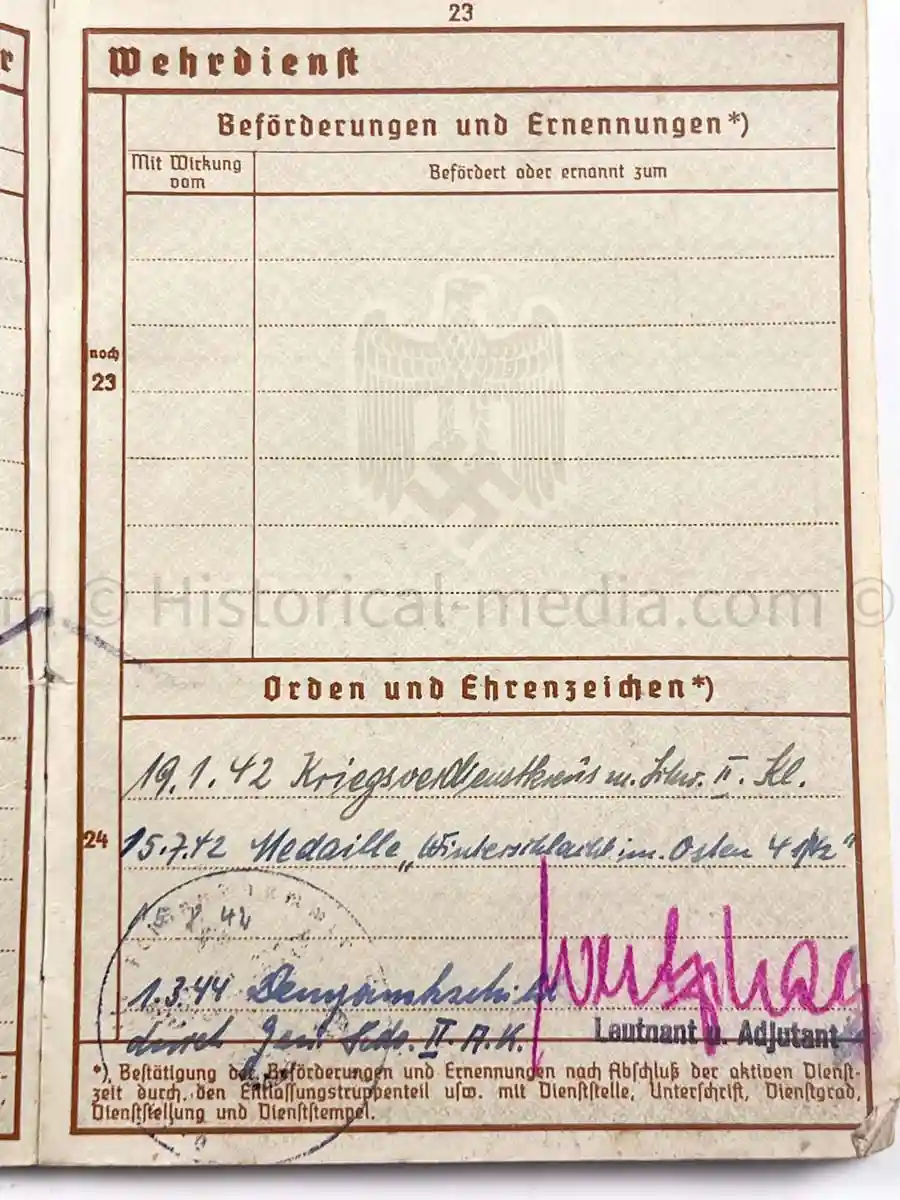 23
r
Wehrdienst
Beförderungen und Ernennungen*)
Mit Wirkung
vom
Befördert oder ernannt zum
noch
23
m © Historical-media.com ©
Orden und Ehrenzeichen*)
19.1.42 Kriegsverdienstkreus m. Schw. II. Kl.
24
15.7.42 Medaille „Winterschlacht im Osten 41/42"
42
1.3.44 Demjanskschild
durch Gen Kdo. II. A.K.
Leutnant u. Adjutant
*) Bestätigung der Beförderungen und Ernennungen nach Abschluß der aktiven Dienst-
zeit durch den Entlassungstruppenteil usw. mit Dienststelle, Unterschrift, Dienstgrad,
Dienststellung und Dienststempel.